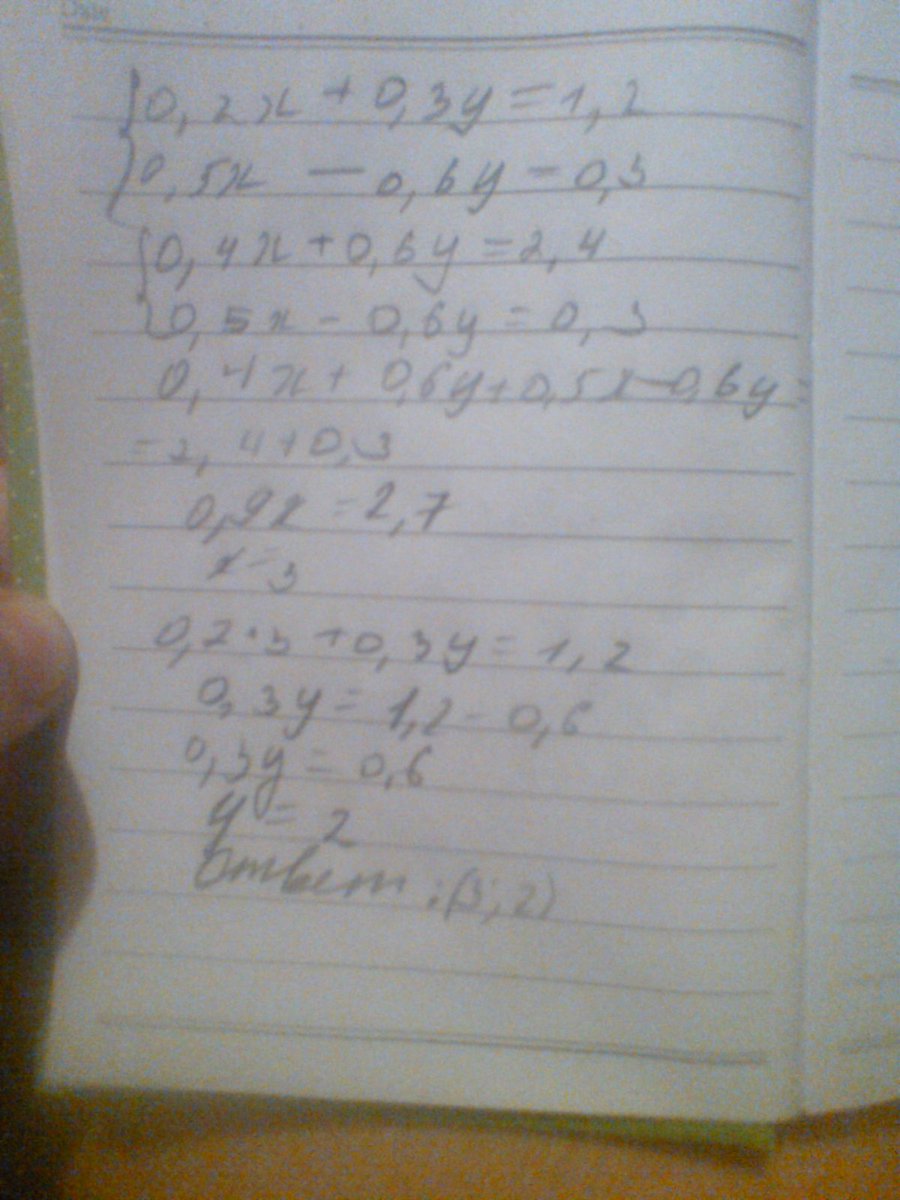 0,2x + 0,3y = 1,2
0,5x - 0,6y - 0,3
0,4x + 0,6y = 2,4
0,5x - 0,6y = 0,3
0,4x + 0,6y + 0,5x - 0,6y =
= 2,4 + 0,3
0,9x = 2,7
x = 3
0,2·3 + 0,3y = 1,2
0,3y = 1,2 - 0,6
0,3y = 0,6
y = 2
Ответ: (3; 2)